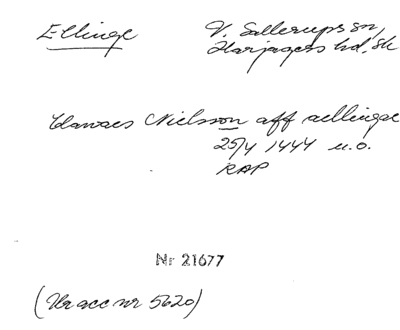 Ellinge
V. Sallerups sn,
Harjagers hd, Sk
Hannes Nielsson aff aellinge
25/4 1444 u.o.
RAP
Nr 21677
(Ur acc nr 5620)